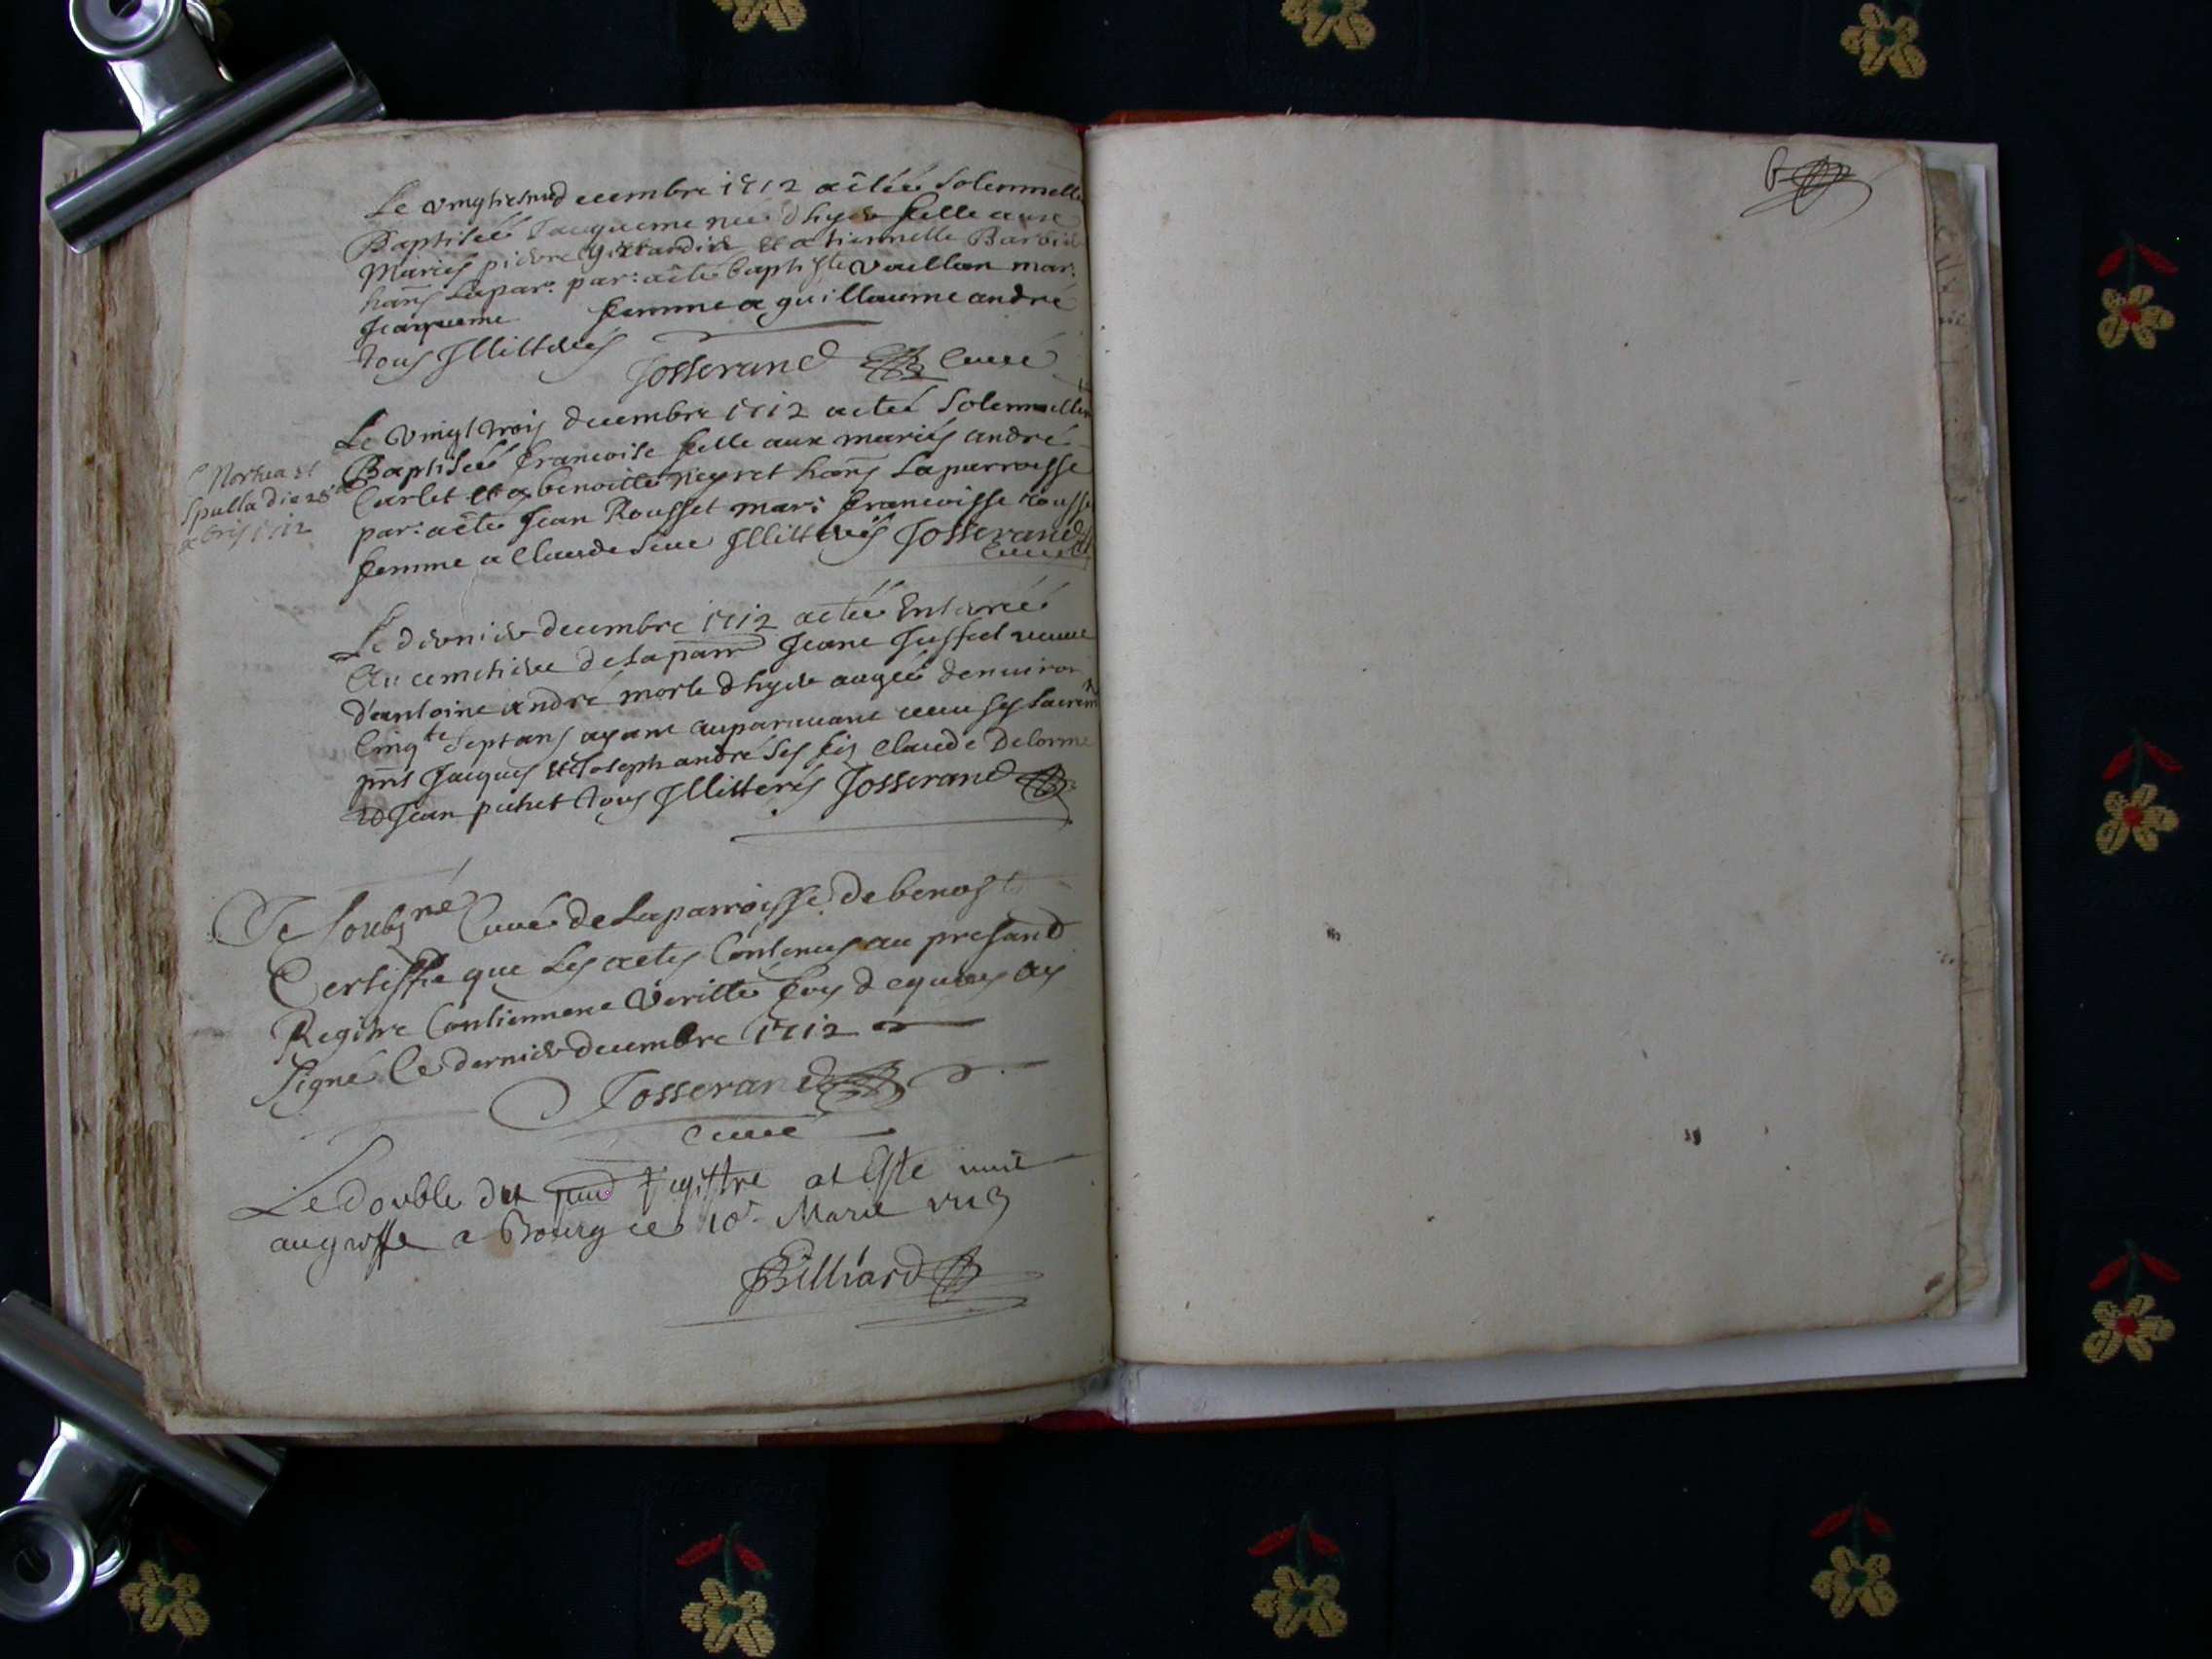 Le vingtiesme decembre 1712 a étéé Solemnelle
Baptiséé Jacqueme néé dhyer fille aux
Mariés pierre Girardier et a tiennette Barbier
hans Lapar: par: a été baptiste vaillan mar:
Jeacqueme femme a guillaume andré
tous Jllitterés
Josserand Curé
Le vingt trois decembre 1712 a etéé Solemnellem
Baptiséé francoise fille aux mariés andré
Carlet et a benoitte Neyret hans Laparroisse
par: a été Jean Rousset mar: francoisse rousse
femme a Claude Jllitterés Josserand
Curé
Mortua et
Spulta die 28
xbris 1712
Le dernier decembre 1712 a étéé Enterréé
Au cemetiere de La parr Jeane veuve
d'antoine andré morte dhyer augéé denviron
Cinqte Sept ans ayant auparavant receu ses Sacrem
pnts Jacques et Joseph andré Ses fis Claude Delorme
et Jean tous Jllitterés Josserand
Je Soubzné Curé de Laparroisse de benost
Certiffie que Les actes Contenus au presand
Registre Contiennent veritté foy dequoy ay
Signé Ce dernier decembre 1712
Josserand
Curé
Le double dut pnt Registre at Esté mit
au greffe a Bourg ce 10e Mars 1713
Billiard